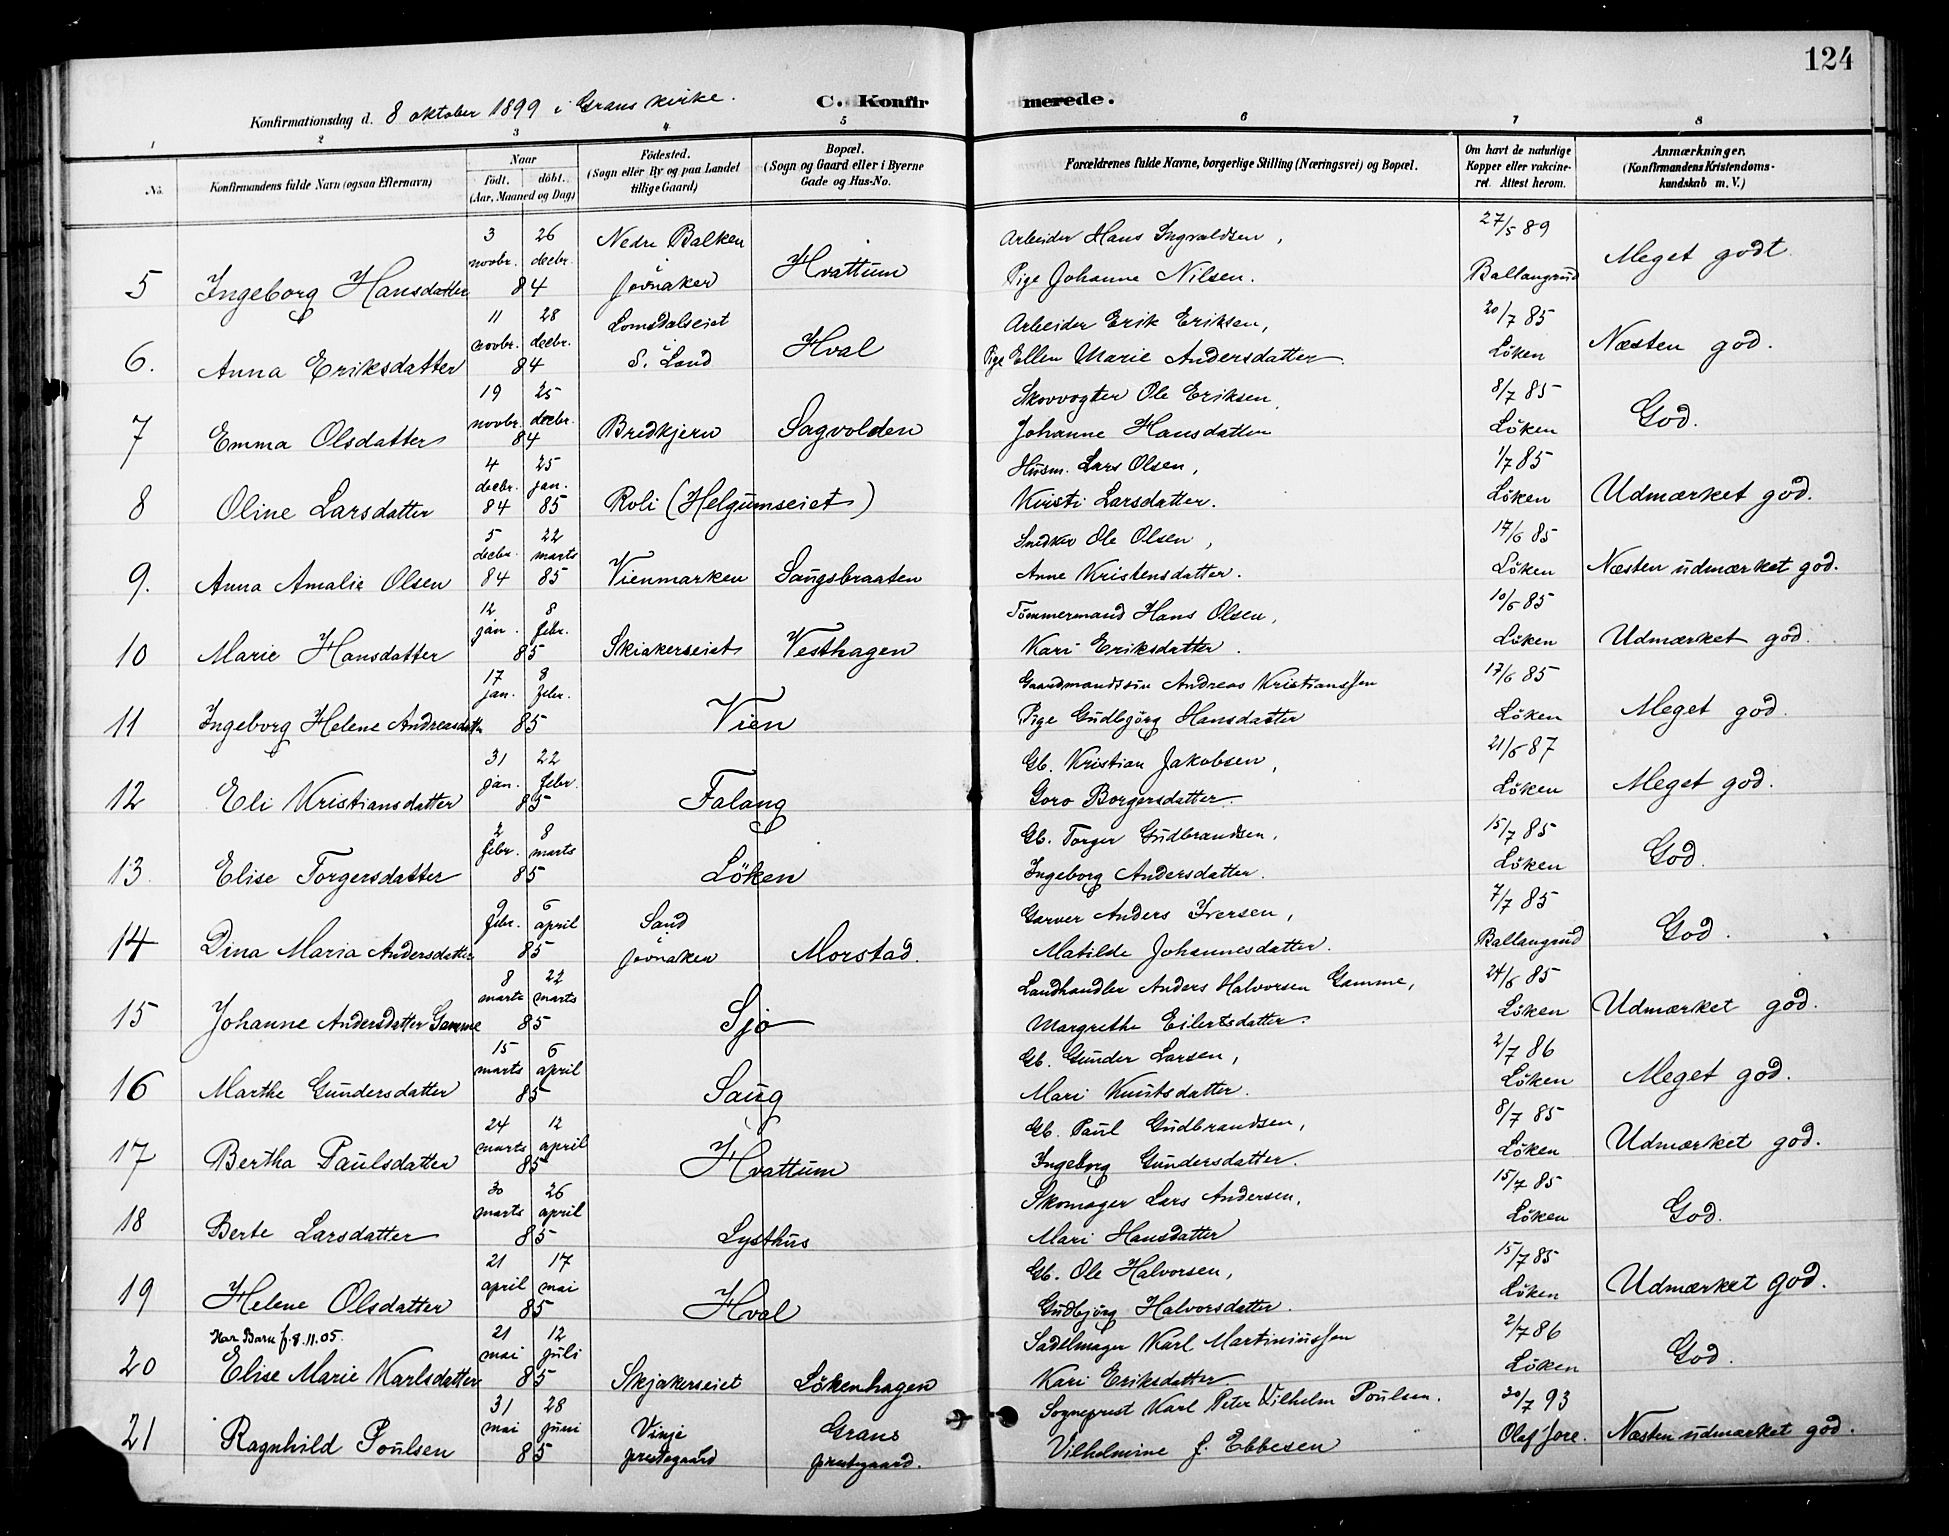 124
Konfirmationsdag d. 8 oktober 1899 i Grans kirke. C. Konfirmerede.
1 2 3 4 5 6 7 8
No. Konfirmandens fulde Navn (ogsaa Efternavn) Naar født. døbt. (Aar, Maaned og Dag) Fødested. (Sogn eller By og paa Landet tillige Gaard) Bopæl. (Sogn og Gaard eller i Byerne Gade og Hus-No. Forældrenes fulde Navne, borgerlige Stilling (Næringsvei) og Bopæl. Om havt de naturlige Kopper eller vakcineret. Attest herom. Anmærkninger, (Konfirmandens Kristendomskundskab m. V.)
3 26 Nedre Balken Arbeider Hans Ingvaldsen, 27/5 89
novbr. decbr. Hvattum Meget godt.
5 Ingeborg Hansdatter 84 Jevnaker Pige Johanne Nilsen. Ballangrud
11 28 Lomsdalseiet Arbeider Erik Eriksen, 20/7 85
novbr. decbr. Hval Næsten god.
6. Anna Eriksdatter 84 S. Land Pige Ellen Marie Andersdatter Löken
19 25 Skovvogter Ole Eriksen, 8/7 85
novbr. decbr. God.
7 Emma Olsdatter 84 Bredkjern Sagvolden Johanne Hansdatter Löken
4 25 Husm. Lars Olsen, 1/7 85
decbr. jan.
8 Oline Larsdatter 84 85 Roli (Helgumseiet) Kirsti Larsdatter. Löken Udmærket god.
5 22 Snedker Ole Olsen, 17/6 85
decbr. marts
9. Anna Amalie Olsen 84 85 Vienmarken Saugsbraaten Anne Kristensdatter. Löken Næsten udmærket god.
12 8 Tömmermand Hans Olsen, 10/6 85
jan. febr.
10 Marie Hansdatter 85 Skiakerseiet Vesthagen Kari Eriksdatter. Löken Udmærket god.
17 8 Gaardmandssön Andreas Kristianssen 17/6 85
jan. febr.
11 Ingeborg Helene Andreasdatter 85 Vien Pige Gudbjörg Hansdatter Löken Meget god.
31 22 Gb. Kristian Jakobsen, 21/6 87
jan. febr.
12 Eli Kristiansdatter 85 Falang Goro Borgersdatter. Löken Meget god.
2 8 Gb. Torger Gudbrandsen, 15/7 85
febr. marts God.
13. Elise Torgersdatter 85 Löken Ingeborg Andersdatter. Löken
9 6 Garver Anders Iversen, 7/7 85
febr. april Sand God.
14 Dina Maria Andersdatter 85 Jevnaker Morstad. Matilde Johannesdatter. Ballangrud
8 22 Landhandler Anders Halvorsen Gamme, 24/6 85
marts marts
15 Johanne Andersdatter Gamme 85 Sjo Margrethe Eilertsdatter. Löken Udmærket god.
15 6 Gb. Gunder Larsen, 2/7 86
marts april
16 Marthe Gundersdatter 85 Saug Mari Knutsdatter. Löken Meget god.
24 12 Gb. Paul Gudbrandsen, 8/7 85
marts april
17 Bertha Paulsdatter 85 Hvattum Ingeborg Gundersdatter. Löken Udmærket god.
30 26 Skomager Lars Andersen, 15/7 85
marts april
18 Berte Larsdatter 85 Lysthus Mari Hansdatter Löken God.
21 17 Gb. Ole Halvorsen, 15/7 85
april mai
19 Helene Olsdatter 85 Hval Gudbjörg Halvorsdatter. Löken Udmærket god.
Har Barn f. 8.11.05. 21 12 Sadelmager Karl Martiniussen 2/7 86
mai juli God.
20 Elise Marie Karlsdatter 85 Skjakerseiet Lökenhagen Kari Eriksdatter. Löken
31 28 Sogneprest Karl Peter Vilhelm Poulsen. 20/7 93
mai juni Vinje Grans
21 Ragnhild Poulsen 85 prestegaard prestegaard. Vilhelmine f. Ebbesen Olaf Jore. Næsten udmærket god.